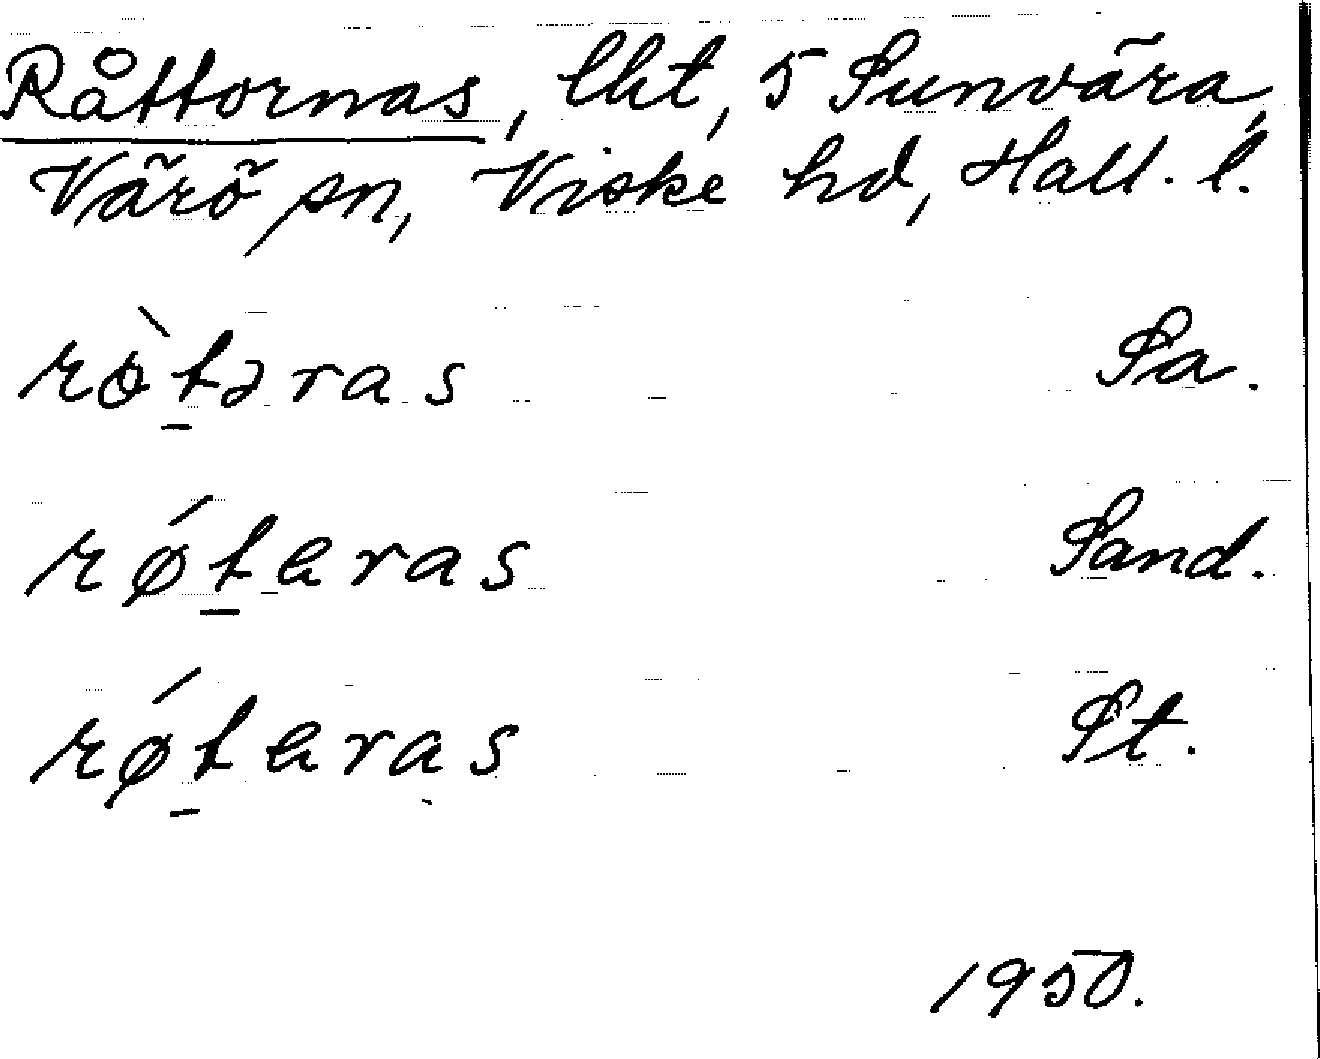 Råttornas, lht, 5 Sunvära,
Värö sn, Viske hd, Hall. l.
rò̱təras Sa.
rǿṯeras Sand.
rǿṯeras St.
1950.